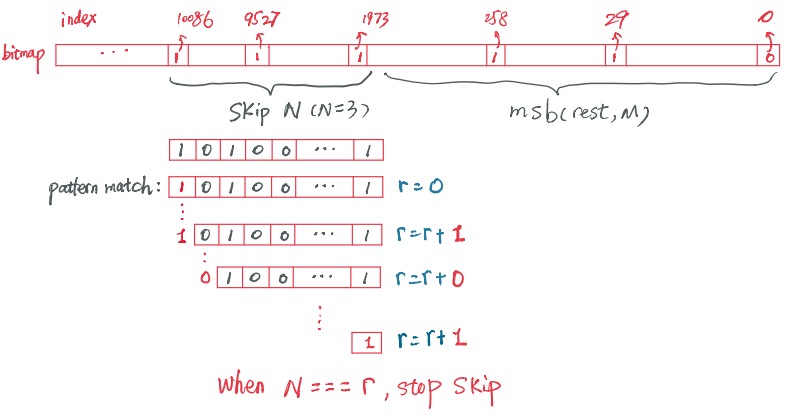 index 10086 9527 1973 258 29 0
bitmap ... 1 1 1 1 1 0
Skip N (N=3) msb(rest, M)
1 0 1 0 0 ... 1
pattern match: 1 0 1 0 0 ... 1 r=0
1 0 1 0 0 ... 1 r=r+1
0 1 0 0 ... 1 r=r+0
1 r=r+1
When N === r, stop Skip